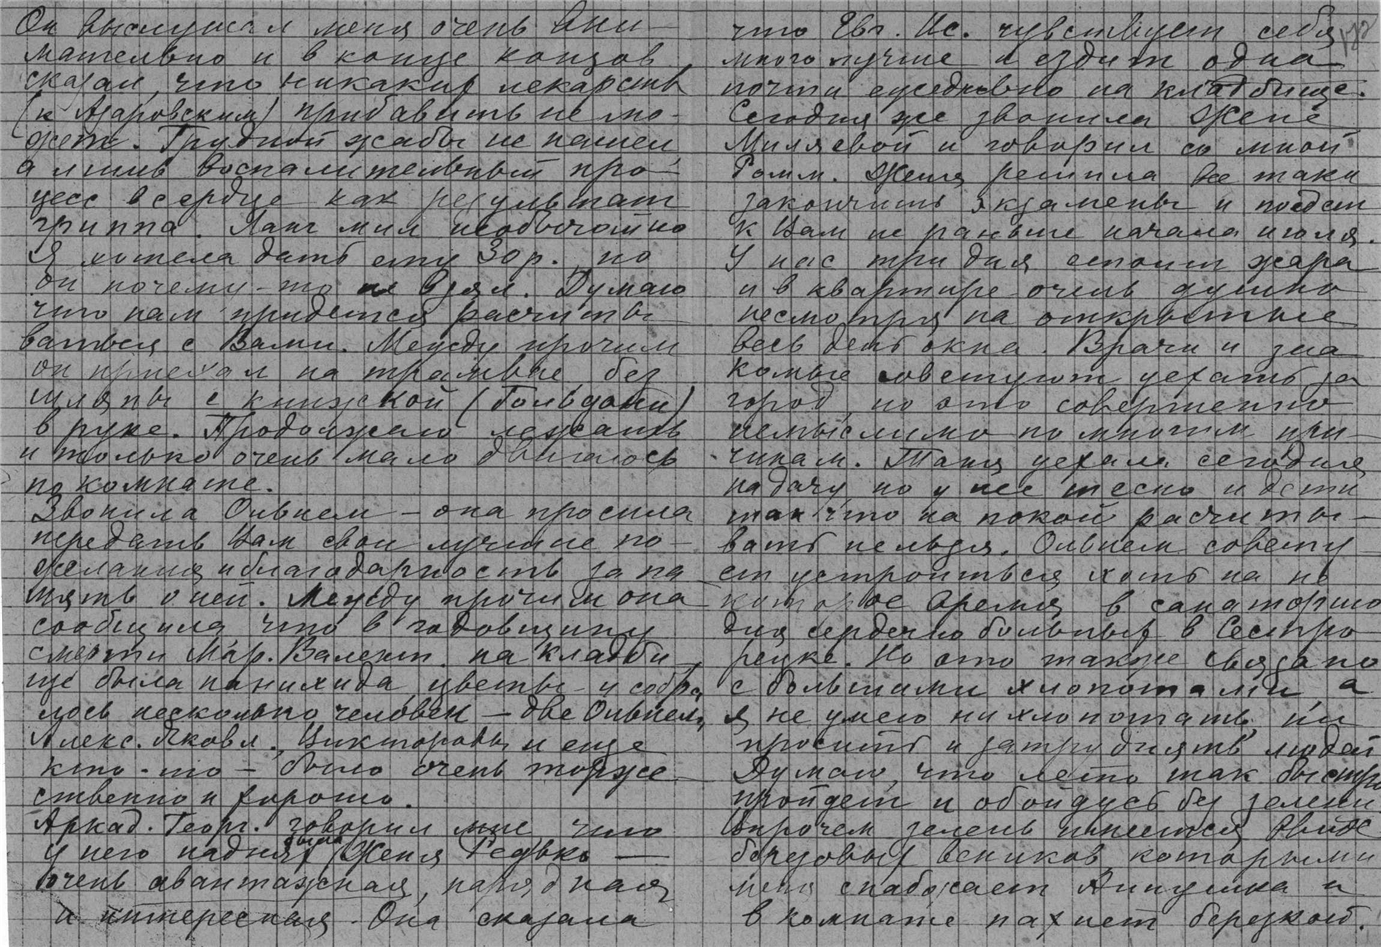 Он выслушал меня очень вни-
мательно и в конце концов
сказал, что никаких лекарств
(к Азаровским) прибавить не мо-
жет. Грудной жабы не нашел,
а лишь воспалительный про-
цесс в сердце как результат
гриппа. Ланг мил необычайно
Я хотела дать ему 30 р. но
он почему-то не взял. Думаю
что нам придется расчиты-
ваться с Вами. Между прочим
он приехал на трамвае без
шляпы с книжкой (Гольдони)
в руке. Продолжаю лежать
и только очень мало двигаюсь
по комнате.
Звонила Ольнем – она просила
передать Вам свои лучшие по-
желания и благодарность за па
мять о ней. Между прочим она
сообщила, что в годовщину
смерти Мар. Валент. на кладби-
ще была панихида, цветы и собра
лось несколько человек – две Ольнем,
Алекс. Яковл., Викторовы и еще
кто-то – было очень торже-
ственно и хорошо.
Аркад. Георг. говорил мне, что
у него на днях была Женя Редько –
очень авантажная, нарядная
и интересная. Она сказала
172
что Евг. Ис. чувствует себя
много лучше и ездит одна
почти ежедневно на кладбище.
Сегодня же звонила Жене
Миляевой и говорил со мной
Ромм. Женя решила все таки
закончить экзамены и поедет
к Вам не раньше начала июля.
У нас три дня стоит жара
и в квартире очень душно
несмотря на открытые
весь день окна. Врачи и зна
комые советуют уехать за
город, но это совершенно
немыслимо по многим при-
чинам. Таня уехала сегодня
на дачу, но у нее тесно и дети
так что на покой расчиты-
вать нельзя. Ольнем совету-
ет устроиться хоть на не
которое время в санаторию
для сердечно больных в Сестро-
рецке. Но это также связано
с большими хлопотами а
я не умею ни хлопотать, ни
просить и затруднять людей
Думаю, что лето так быстро
пройдет и обойдусь без зелени
Впрочем зелень имеется в виде
березовых веников, которыми
меня снабжает Аннушка и
в комнате пахнет березкой.